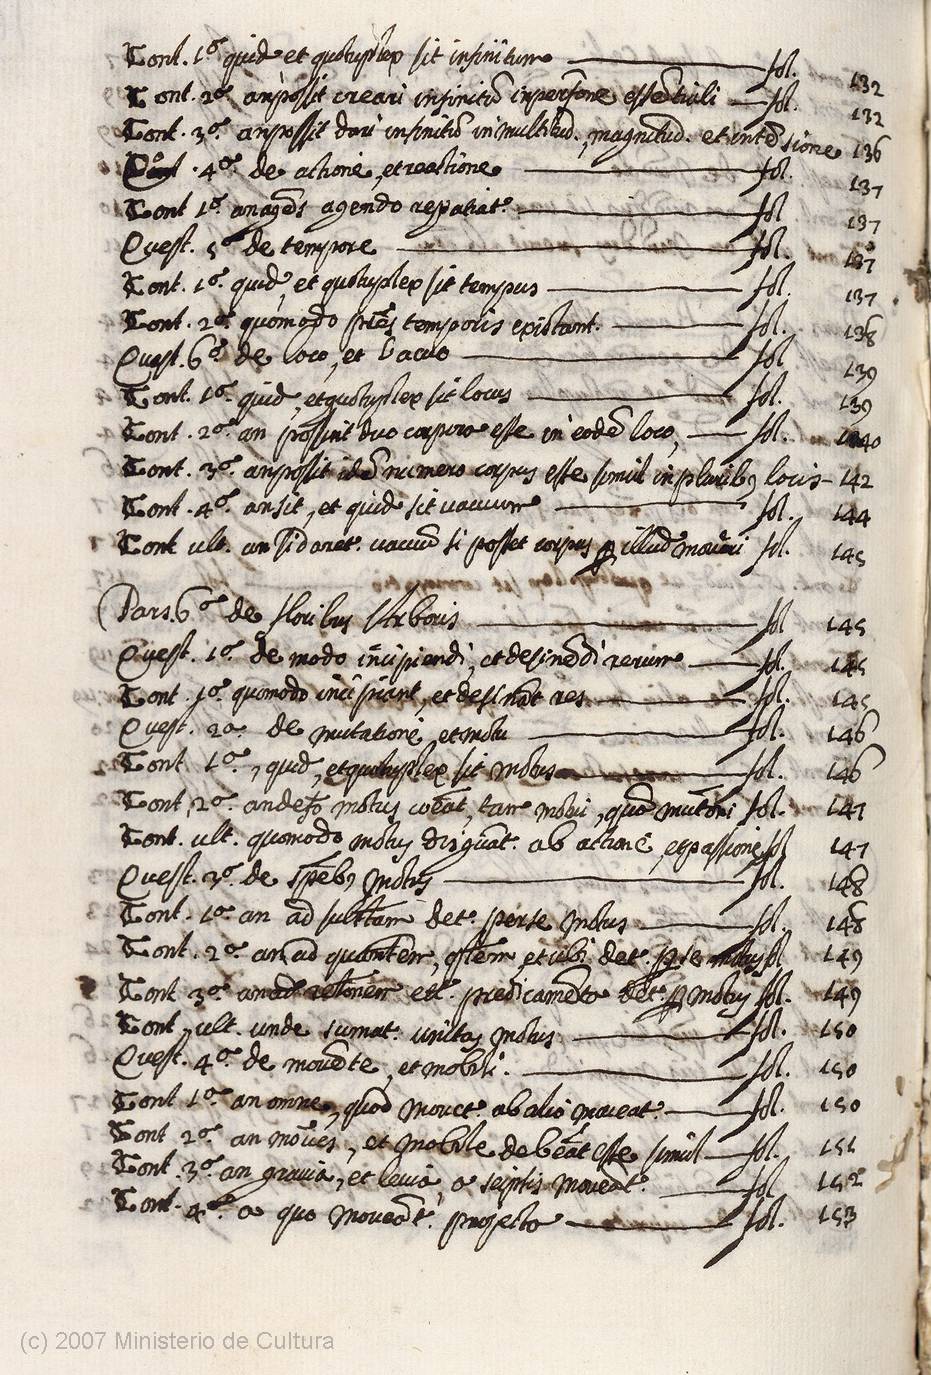 Cont. 1ª quid et quotuplex sit infinitum fol. 132
Cont. 2ª an possit creari infinitũ in perfõne essẽtiali fol. 132
Cont. 3ª an possit dari infinitũ in multitud. magnitud. et intẽsione 136
4ª de actione, et reactione fol. 137
Cont 1ª an agẽs agendo repatiat.ʳ fol. 137
Quest. 5ª de tempore fol. 137
Cont. 1ª quid, et quotuplex sit tempus fol. 137
Cont. 2ª quomodo ptẽs temporis existant. fol. 138
Quest. 6ª de loco, et vacuo fol 139
Cont. 1ª quid, et quotuplex sit locus fol. 139
Cont. 2ª an possint duo corpora esse in eodẽ loco, fol. 140
Cont. 3ª an possit idẽ numero corpus esse simul in pluribꝰ locis 142
Cont. 4ª an sit, et quid sit vacuum fol. 144
Cont ult. an si daret. vacuũ si posset corpus ꝑ illud moveri fol. 145
Pars 6ª de floribus Arboris fol 145
Quest. 1ª de modo incipiendi, et desinẽdi rerum fol. 145
Cont 1ª quomodo incipiant, et desinãt res fol. 145
Quest. 2ª de mutatione, et motu fol. 146
Cont 1ª, quid, et quotuplex sit motus fol. 146
Cont, 2ª. motus tam motui, quã fol. 147
Cont. ult. quomodo motus distiguãt. ab actione, et passione fol 147
Quest. 3ª. de spẽbꝰ motus fol. 148
Cont. 1ª an ad subs̃tam det.ʳ per se motus fol. 148
Cont. 2ª. an ad quantem, qltem, et ubi det.ʳ ꝑ se motus fol 149
Cont 3ª an ad relõnem etc. predicamẽta det.ʳ ꝑ motus fol. 149
Cont, ult. unde sumat.ʳ unitas motus fol. 150
Quest. 4ª de movẽte, et mobili. fol. 150
Cont 1ª an omne, quod movet.ʳ ab alio moveat.ʳ fol. 150
Cont 2ª. an movẽs, et mobile debeãt esse simul fol. 151
Cont. 3ª an gravia, et levia, a seipsis moveãt.ʳ fol 152
Cont. 4ª a quo moveãt.ʳ projecta fol. 153
(c) 2007 Ministerio de Cultura